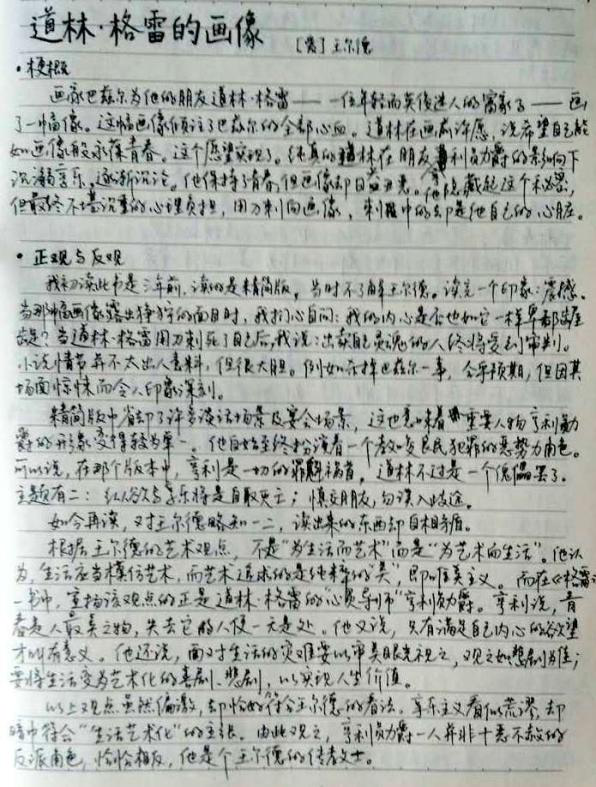 道林·格雷的画像 [英] 王尔德
·梗概
画家巴兹尔为他的朋友道林·格雷——一位年轻而英俊迷人的富家子——画
了一幅像。这幅画像倾注了巴兹尔的全部心血。道林在画前许愿,说希望自己能
如画像般永葆青春。这个愿望实现了。纯真的道林在朋友亨利勋爵的影响下
沉溺享乐,逐渐沉沦。他保持了青春,但画像却日益丑恶。他隐藏起这个秘密,
但最终不堪沉重的心理负担,用刀刺向画像,刺中的却是他自己的心脏。
·正观与反观
我初读此书是三年前,读的是精简版。当时不了解王尔德。读完一个印象:震撼。
当那幅画像露出狰狞的面目时,我扪心自问:我的内心是否也如它一样卑鄙龌
龊?当道林·格雷用刀刺死了自己后,我说:出卖自己灵魂的人终将受到审判。
小说情节并不太出人意料,但很大胆。例如杀掉巴兹尔一事,合乎预期,但因其
场面惊悚而令人印象深刻。
精简版中省却了许多谈话场景及宴会场景,这也意味着重要人物亨利勋
爵的形象变得较为单一。他自始至终扮演着一个教唆良民犯罪的恶势力角色。
可以说,在那个版本中,亨利是一切的罪魁祸首。道林不过是一个傀儡罢了。
主题有二:纵欲享乐将是自取灭亡;慎交朋友,勿误入歧途。
如今再读,又对王尔德略知一二,读出来的东西却自相矛盾。
根据王尔德的艺术观点,不是“为生活而艺术”而是“为艺术而生活”。他认
为,生活应当模仿艺术,而艺术追求的是纯粹的“美”,即唯美主义。而在《格雷》
一书中,宣扬该观点的正是道林·格雷的“心灵导师”亨利勋爵。亨利说,青
春是人最美之物,失去它的人便一无是处。他又说,只有满足自己内心的欲望
才以有意义。他还说,面对生活的灾难要以审美眼光视之,观之如悲剧为佳;
要将生活变为艺术化的喜剧、悲剧,以实现人生价值。
以上观点虽然偏激,却恰好符合王尔德的看法。享乐主义看似荒谬,却
暗中符合“生活艺术化”的主张。由此观之,亨利勋爵一人并非十恶不赦的
反派角色,恰恰相反,他是个王尔德的传教士。